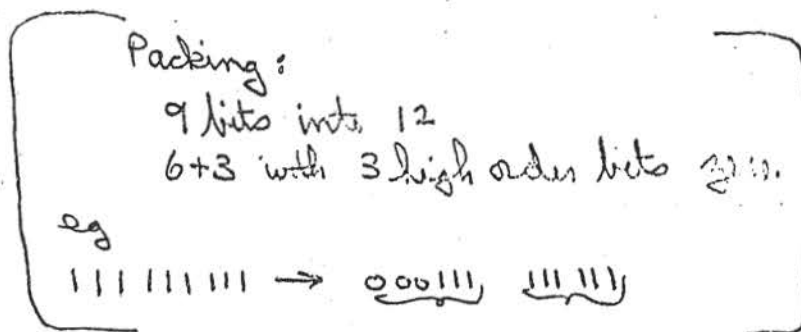 Packing:
9 bits into 12
6+3 with 3 high order bits zero.
eg
111 111 111 → 000111, 111 111,